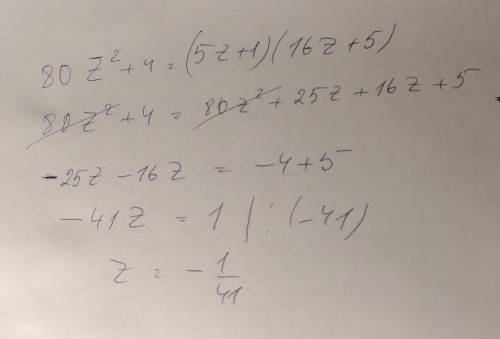 80 Z² + 4 = (5z+1)(16z+5)
80z² + 4 = 80z² + 25z + 16z + 5
-25z - 16z = -4 + 5
-41z = 1 | : (-41)
z = - 1/41